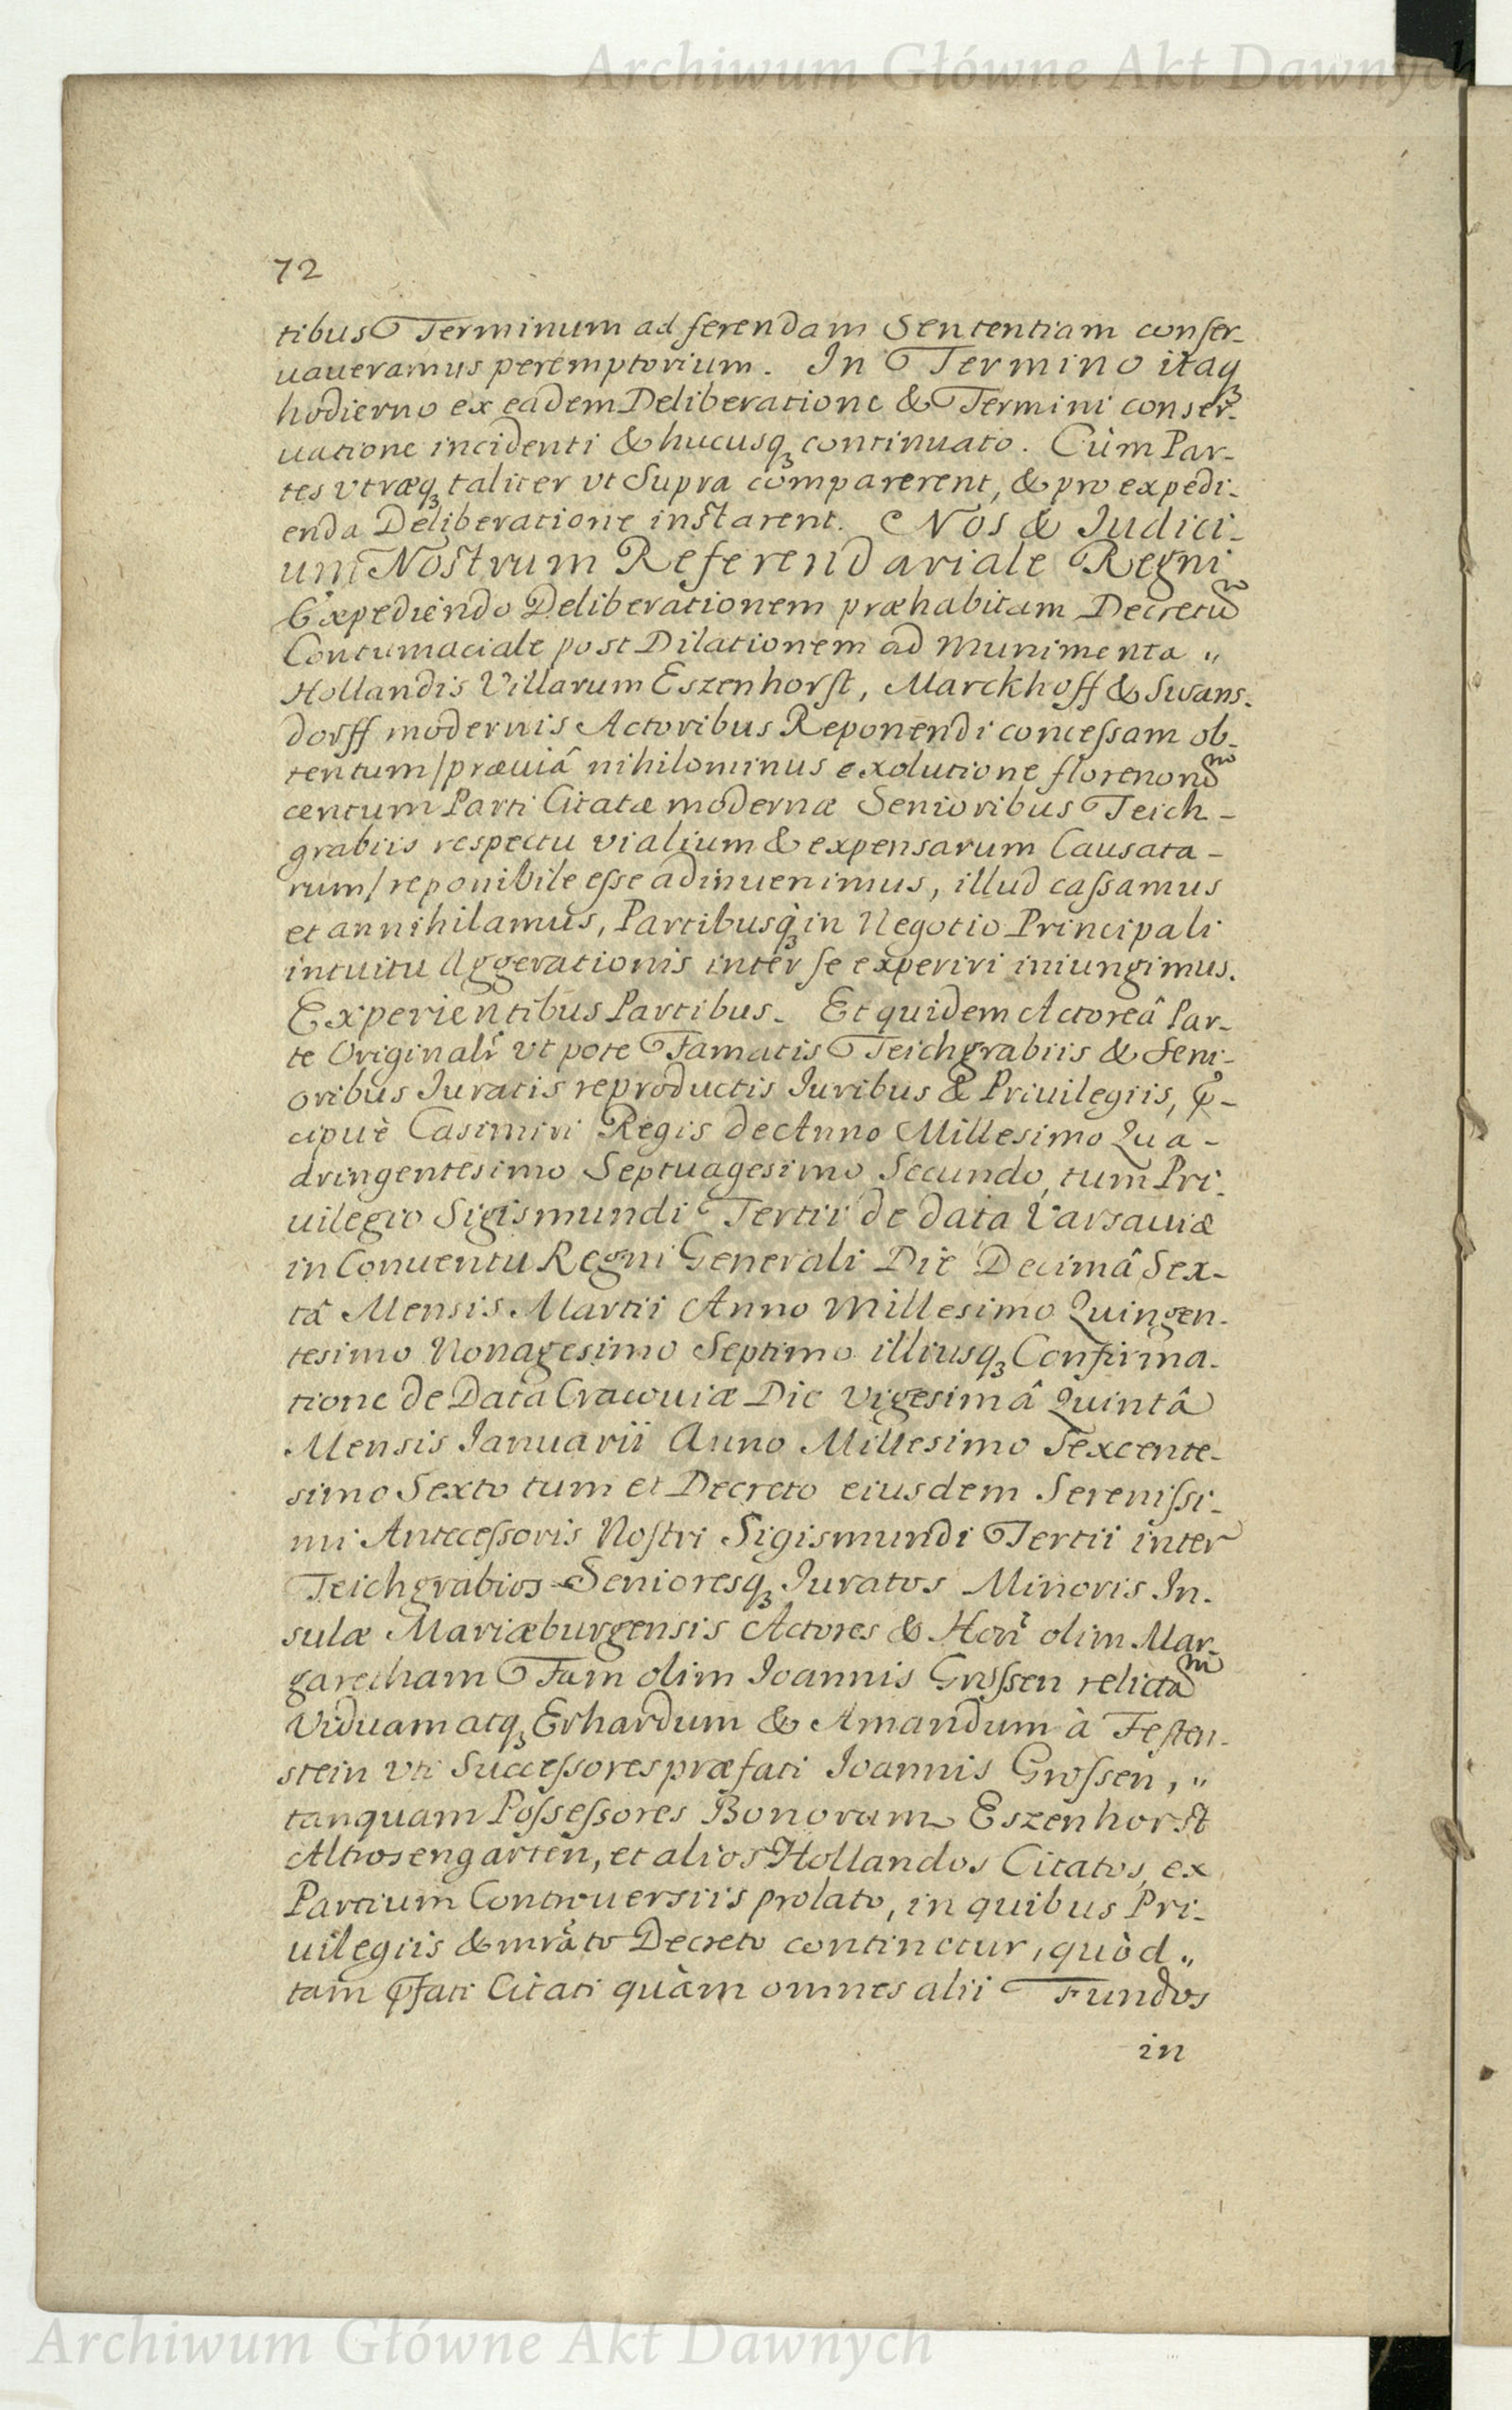 Archiwum Główne Akt Dawnych
72
tibus Terminum ad ferendam Sententiam conser-
uaueramus peremptorium. In Termino itaq
hodierno ex eadem Deliberatione & Termini conser-
uatione incidenti & hucusq continuato. Cùm Par-
tes vtræq taliter vt Supra comparerent, & pro expedi-
enda Deliberatione instarent. Nos & Iudici-
um Nostrum Referendariale Regni
Expediendo Deliberationem præhabitam Decretu
Contumaciale post Dilationem ad munimenta „
Hollandis Villarum Eszenhorst, Marckhoff & Swans-
dorff modernis Actoribus Reponendi concessam ob-
tentum/præuiâ nihilominus exolutione florenon
centum Parti Citatæ modernæ Senioribus Teich-
grabiis respectu vialium & expensarum Causata-
rum/reponibile esse adinuenimus, illud cassamus
et annihilamus, Partibusq in Negotio Principali
intuitu Aggerationis inter se experiri iniungimus.
Experientibus Partibus. Et quidem Actoreâ Par-
te Originali vt pote Famatis Teichgrabiis & Seni-
oribus Iuratis reproductis Iuribus & Priuilegiis, p-
cipuè Casimiri Regis de Anno Millesimo Qua-
dringentesimo Septuagesimo Secundo, tum Pri-
uilegio Sigismundi Tertii de data Varsauiæ
in Conuentu Regni Generali Die Decimâ Sex-
tâ Mensis Martii Anno Millesimo Quingen-
tesimo Nonagesimo Septimo illiusq Confirma-
tione de Data Cracouiæ Die Vigesimâ Quintâ
Mensis Ianuarii Anno Millesimo Sexcente-
simo Sexto tum et Decreto eiusdem Serenissi-
mi Antecessoris Nostri Sigismundi Tertii inter
Teichgrabios Senioresq Iuratos Minoris In-
sulæ Mariæburgensis Actores & Hon olim Mar-
garetham Fam olim Ioannis Grossen relicta
Viduam atq Erhardum & Amandum à Festen-
stein vti Successores præfati Ioannis Grossen, „
tanquam Possessores Bonorum Eszenhorst
Altrosengarten, et alios Hollandos Citatos, ex
Partium Controuersiis prolato, in quibus Pri-
uilegiis & mrato Decreto continetur, quòd „
tam pfati Citati quàm omnes alii Fundos
in
Archiwum Główne Akt Dawnych